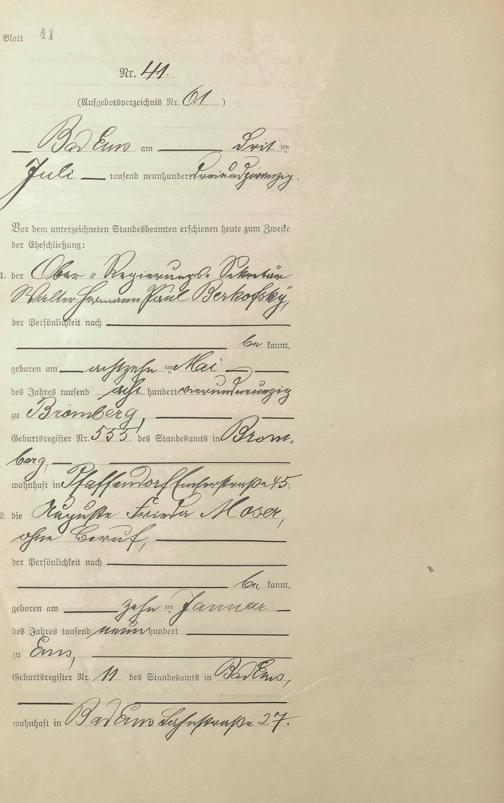 Blatt 41
Nr. 41.
(Aufgebotsverzeichnis Nr. 61)
Bad Ems am Dritten
Juli tausend neunhundert dreiundzwanzig.
Vor dem unterzeichneten Standesbeamten erschienen heute zum Zwecke
der Eheschließung:
1. der Ober-Regierungs-Sekretär
Walter Hermann Paul Berkofsky,
der Persönlichkeit nach
be kannt,
geboren am achtzehnten Mai
des Jahres tausend acht hundert vierundneunzig
zu Bromberg,
Geburtsregister Nr. 555 des Standesamts in Brom-
berg,
wohnhaft in Pfaffendorf Emserstraße 45.
2. die Auguste Frieda Moser,
ohne Beruf,
der Persönlichkeit nach
be kannt,
geboren am zehnten Januar
des Jahres tausend neun hundert
zu Ems,
Geburtsregister Nr. 11 des Standesamts in Bad Ems,
wohnhaft in Bad Ems Lahnstraße 27.